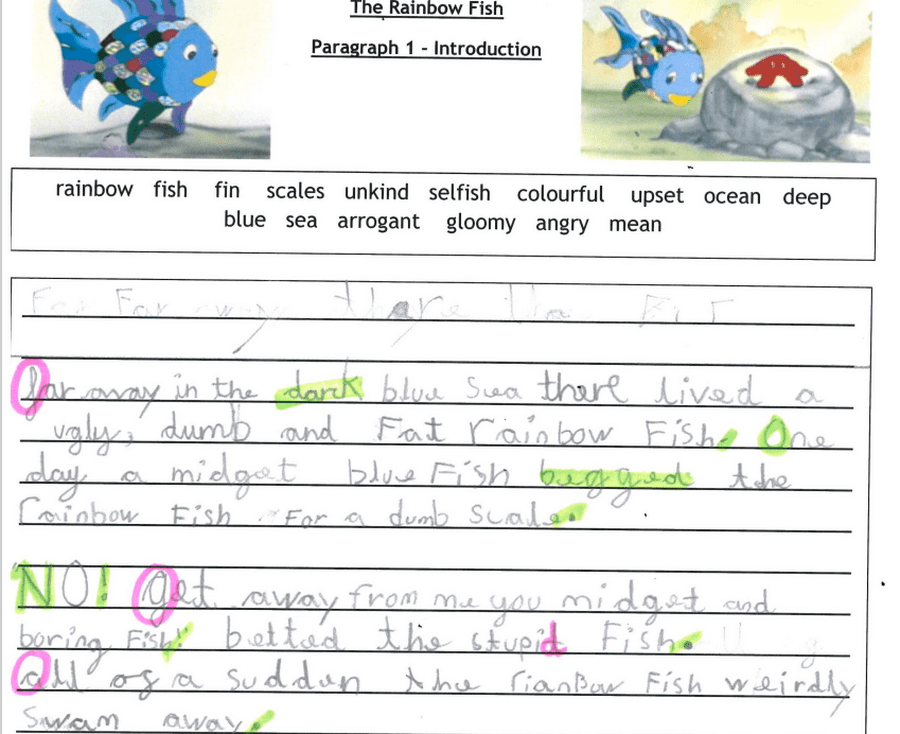 The Rainbow Fish
Paragraph 1 - Introduction
rainbow fish fin scales unkind selfish colourful upset ocean deep
blue sea arrogant gloomy angry mean
Far Far away there the
far away in the dark blue Sea there lived a
ugly, dumb and Fat rainbow Fish. One
day a midget blue Fish begged the
rainbow Fish For a dumb Scale.
"NO! get away from me you midget and
boring Fish!" betted the stupid Fish.
all of a sudden the rianBow Fish weirdly
Swam away.